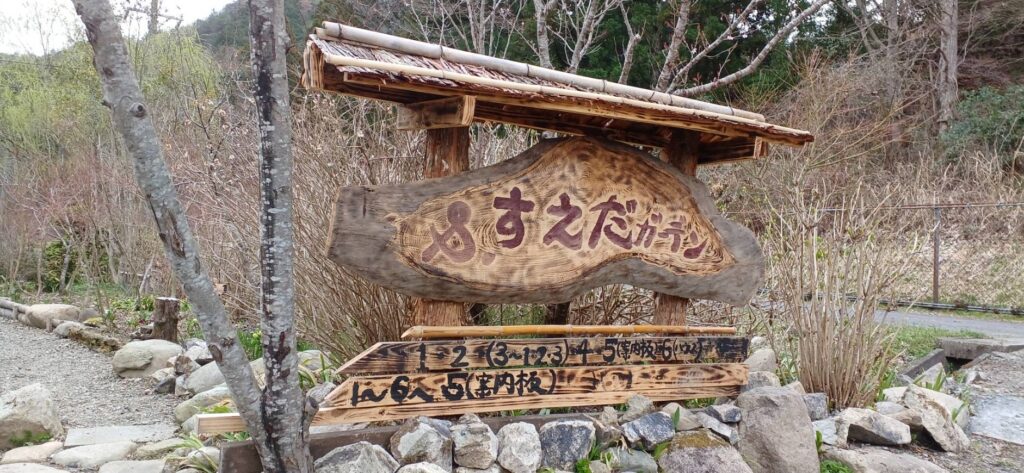 &. すえだガーデン
1 2 (3~1·2·3) 4 5(案内板)
1~6~ 5(案内板)